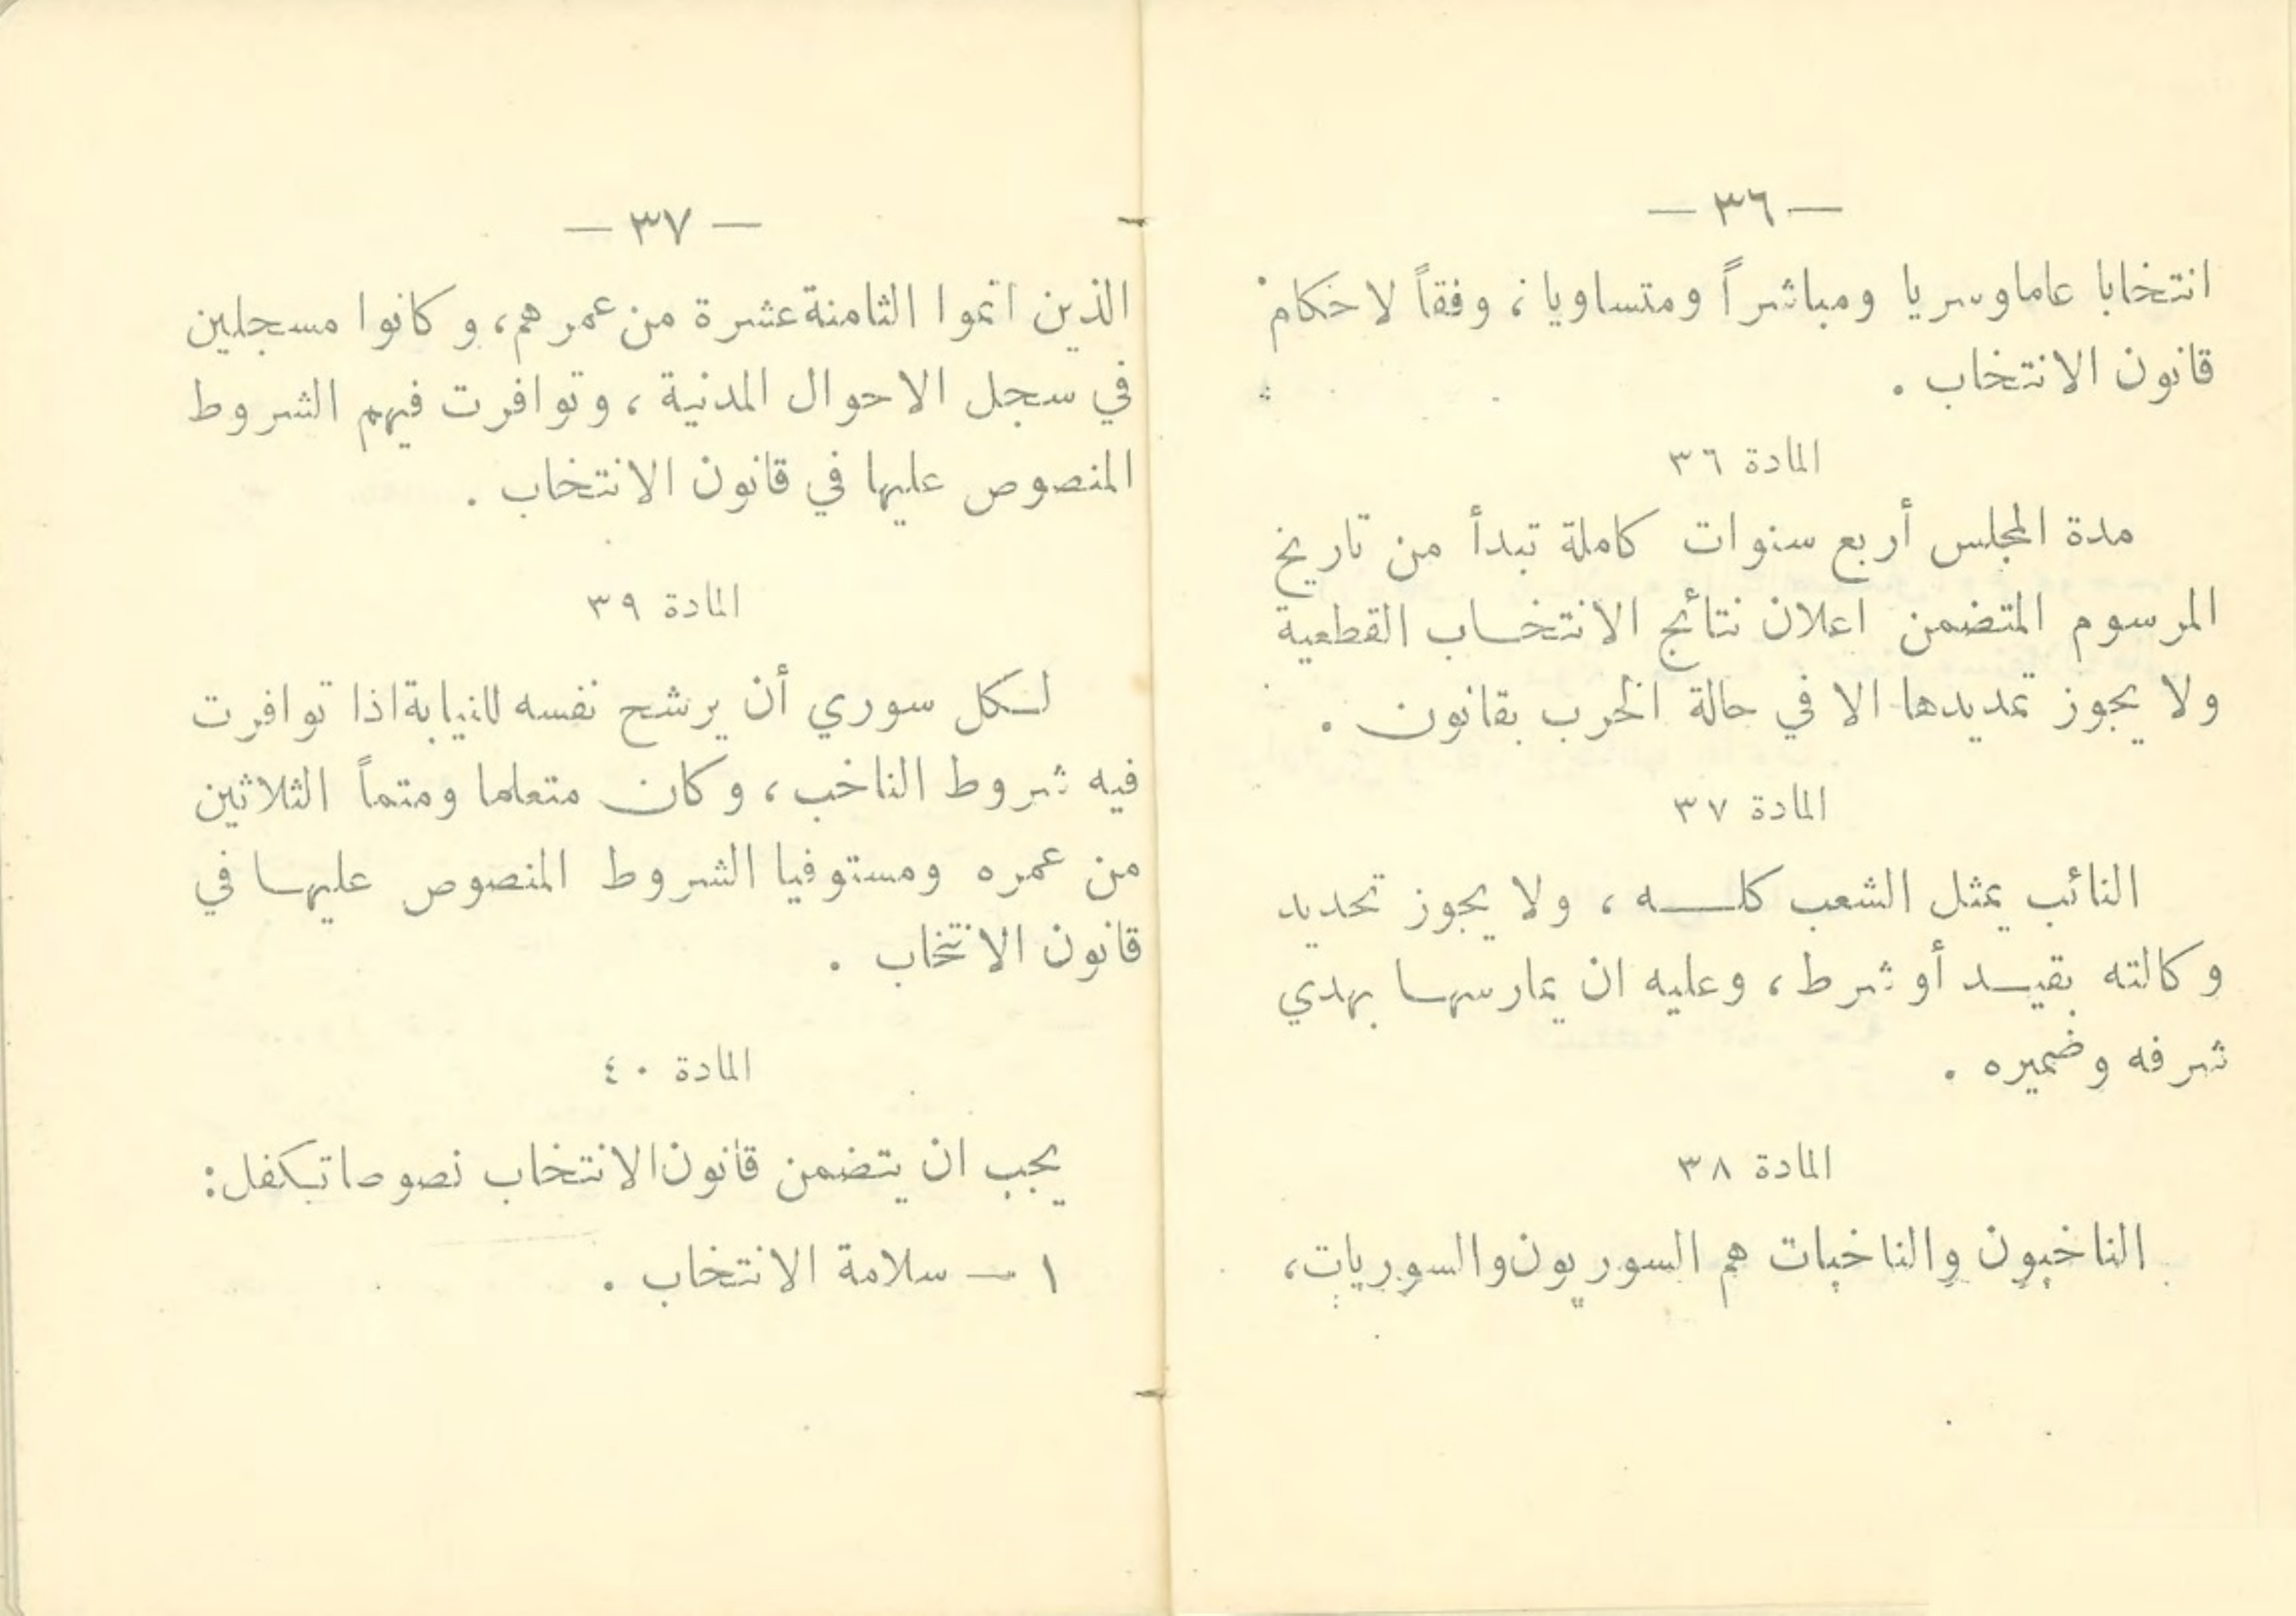 — ٣٦ —
انتخابا عاما وسريا ومباشراً ومتساويا، وفقاً لاحكام
قانون الانتخاب .
المادة ٣٦
مدة المجلس أربع سنوات كاملة تبدأ من تاريخ
المرسوم المتضمن اعلان نتائج الانتخاب القطعية
ولا يجوز تمديدها الا في حالة الحرب بقانون .
المادة ٣٧
النائب يمثل الشعب كله ، ولا يجوز تحديد
وكالته بقيد أو شرط ، وعليه ان يمارسها بهدي
شرفه وضميره .
المادة ٣٨
الناخبون والناخبات هم السوريون والسوريات،
— ٣٧ —
الذين اتموا الثامنة عشرة من عمرهم، وكانوا مسجلين
في سجل الاحوال المدنية ، وتوافرت فيهم الشروط
المنصوص عليها في قانون الانتخاب .
المادة ٣٩
لكل سوري أن يرشح نفسه للنيابة اذا توافرت
فيه شروط الناخب ، وكان متعلما ومتماً الثلاثين
من عمره ومستوفيا الشروط المنصوص عليها في
قانون الانتخاب .
المادة ٤٠
يجب ان يتضمن قانون الانتخاب نصوصا تكفل:
١ — سلامة الانتخاب .